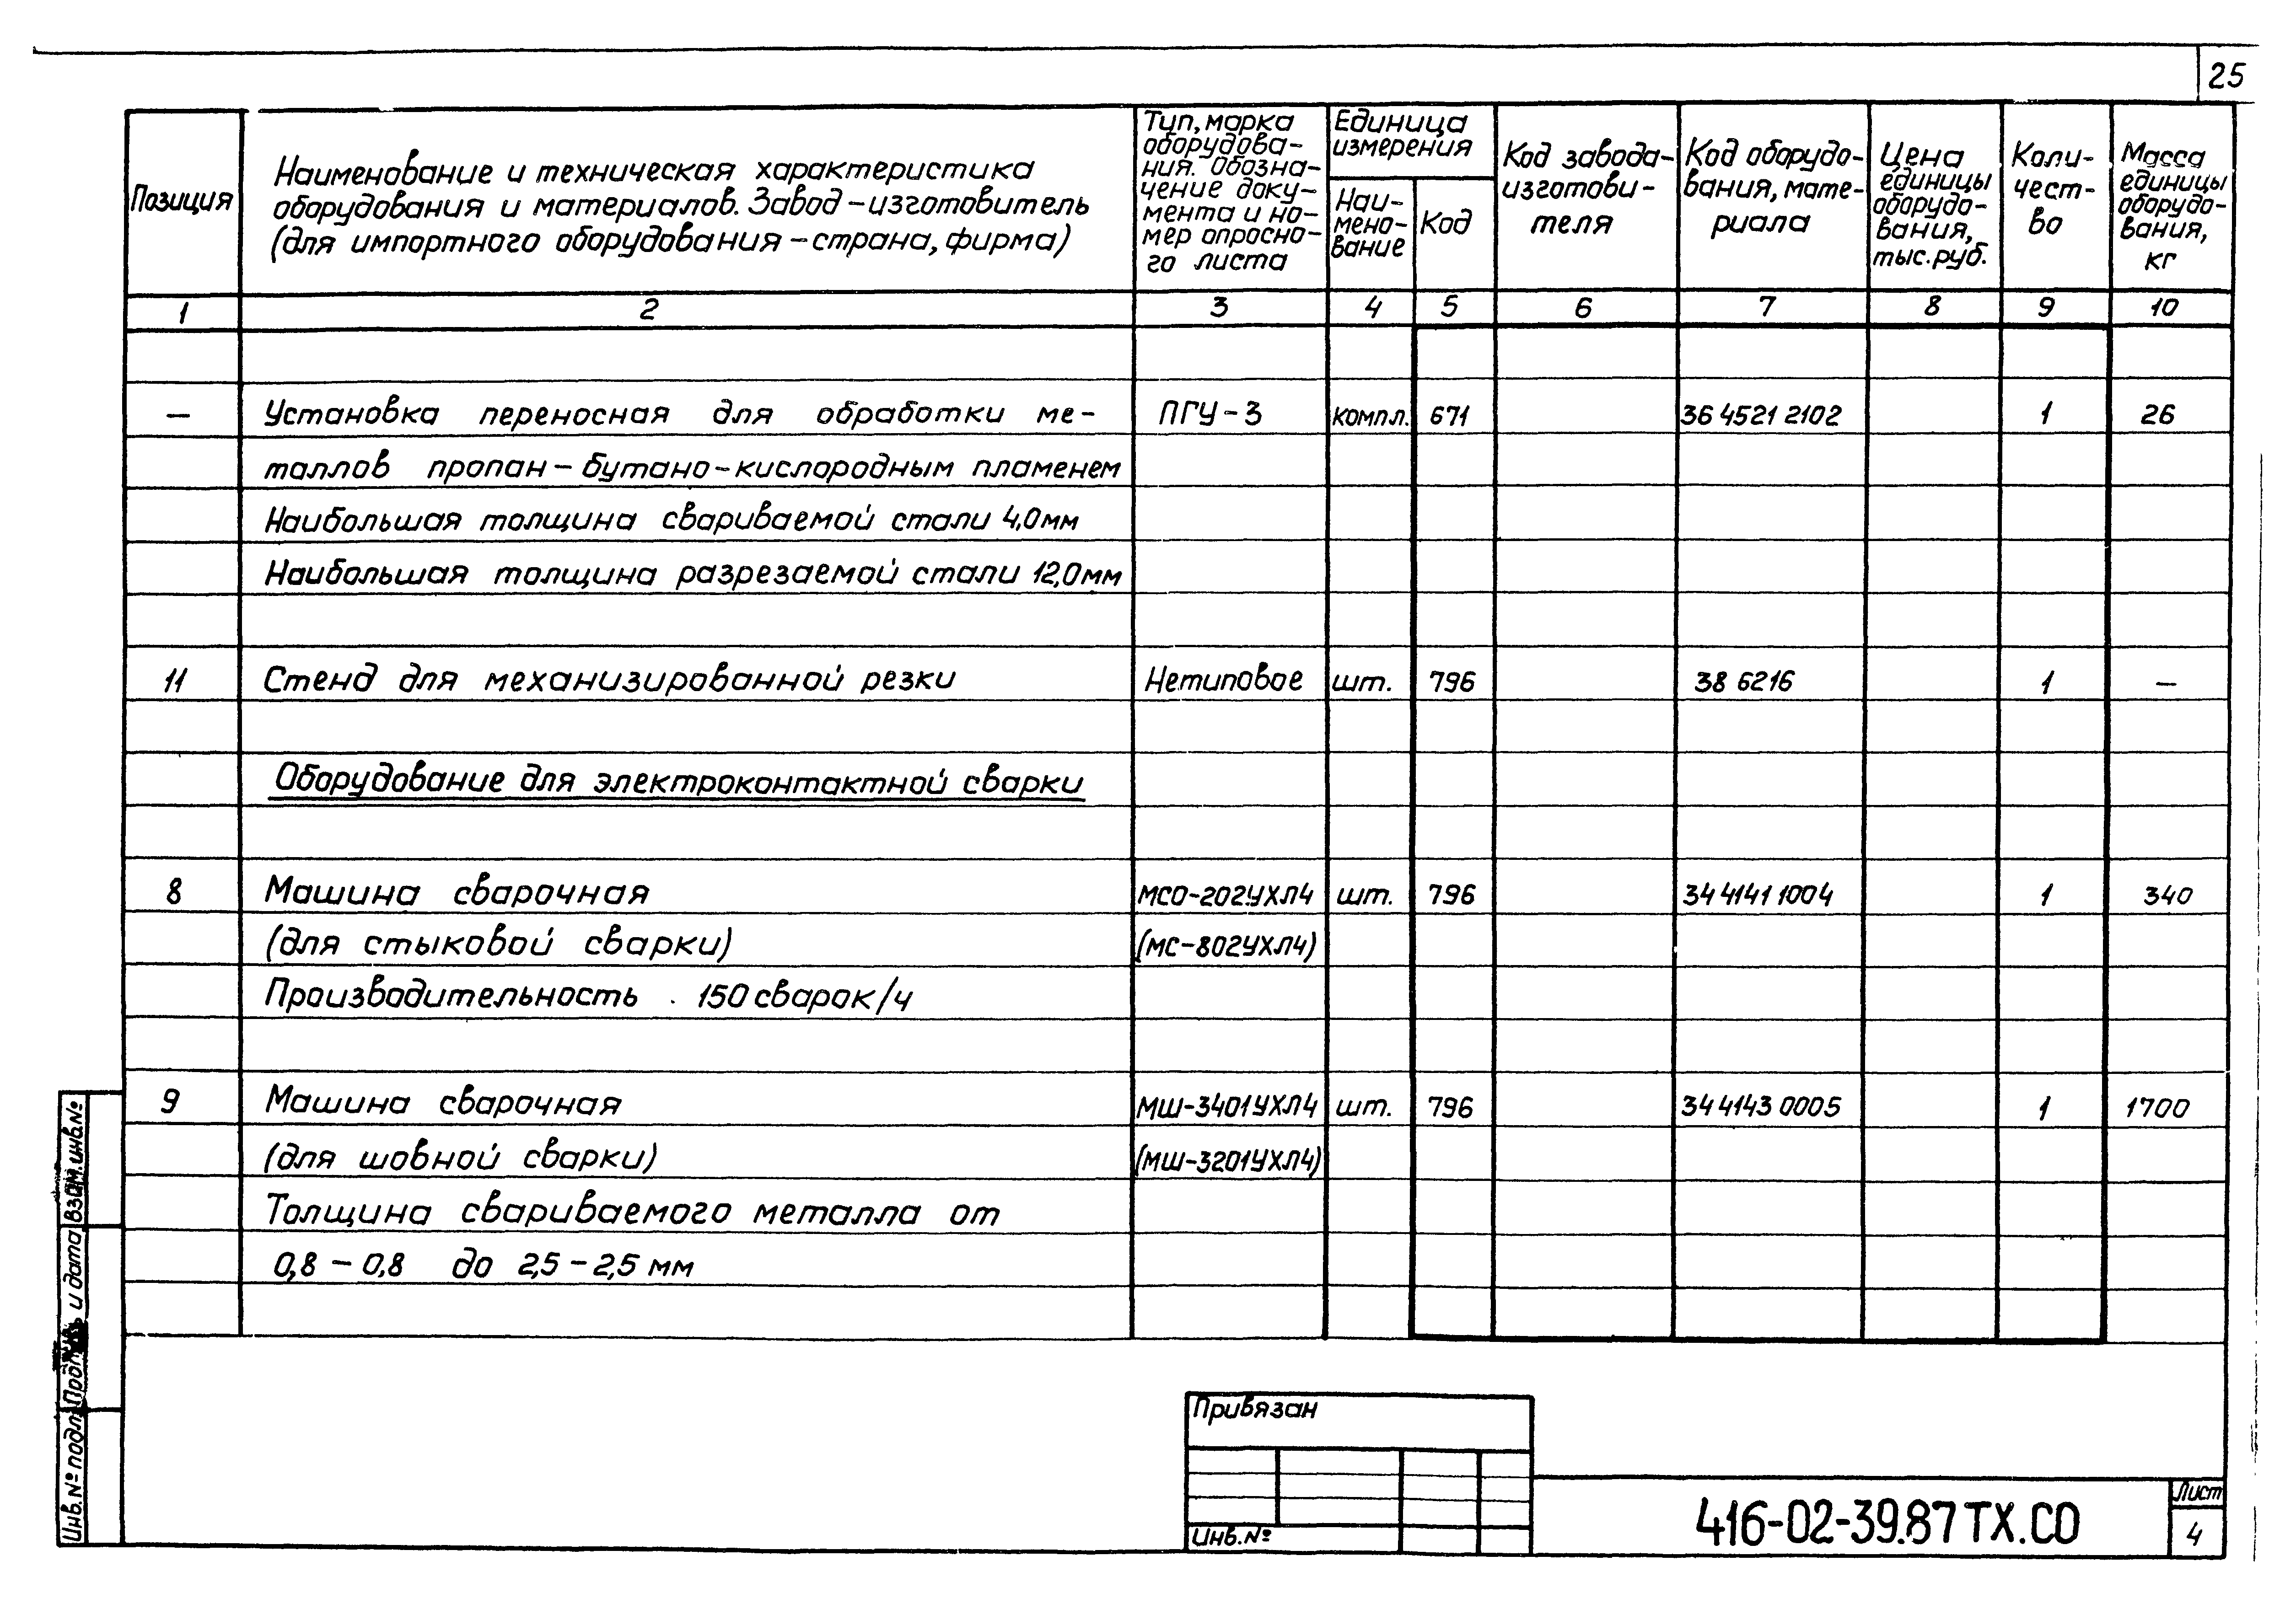 25
Позиция
Наименование и техническая характеристика
оборудования и материалов. Завод-изготовитель
(для импортного оборудования - страна, фирма)
Тип, марка
оборудова-
ния. Обозна-
чение доку-
мента и но-
мер опросно-
го листа
Единица
измерения
Наи-
мено-
вание
Код
Код завода-
изготови-
теля
Код оборудо-
вания, мате-
риала
Цена
единицы
оборудо-
вания,
тыс. руб.
Коли-
чест-
во
Масса
единицы
оборудо-
вания,
кг
1 2 3 4 5 6 7 8 9 10
— Установка переносная для обработки ме- ПГУ-3 компл. 671 36 4521 2102 1 26
таллов пропан-бутано-кислородным пламенем
Наибольшая толщина свариваемой стали 4,0мм
Наибольшая толщина разрезаемой стали 12,0мм
11 Стенд для механизированной резки Нетиповое шт. 796 38 6216 1 —
Оборудование для электроконтактной сварки
8 Машина сварочная МСО-202УХЛ4 шт. 796 34 4141 1004 1 340
(для стыковой сварки) (МС-802УХЛ4)
Производительность . 150 сварок/ч
9 Машина сварочная МШ-3401УХЛ4 шт. 796 34 4143 0005 1 1700
(для шовной сварки) (МШ-3201УХЛ4)
Толщина свариваемого металла от
0,8 - 0,8 до 2,5 - 2,5 мм
Взам. инв. №
и дата
Инв. № подл.
Привязан
Инв. №
416-02-39.87 ТХ.СО
Лист
4